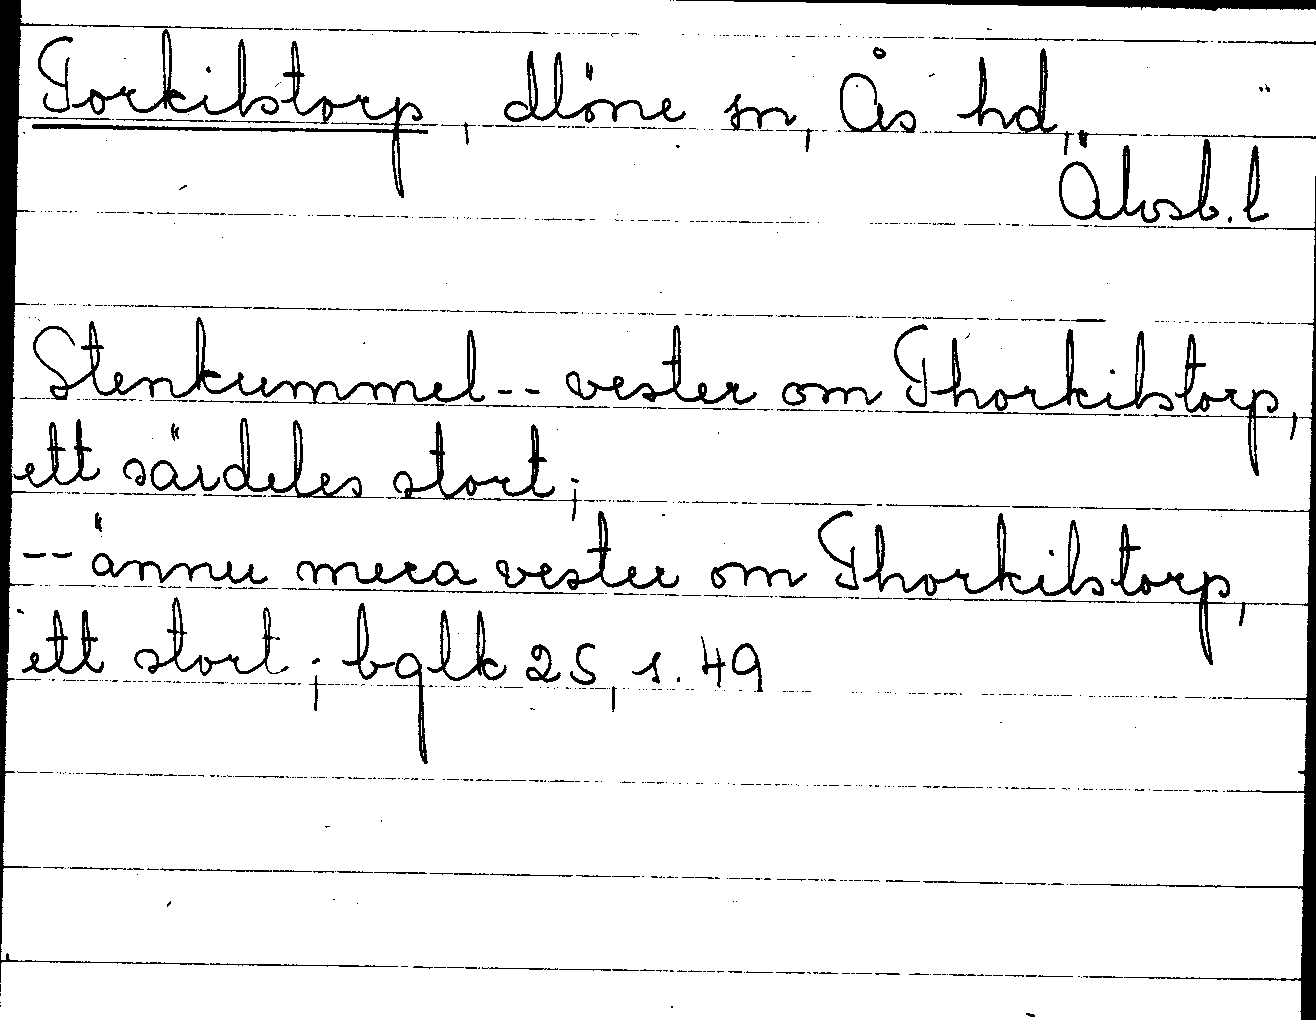 Torkilstorp, Möne sn, Ås hd,
Älvsb. l
Stenkummel -- vester om Thorkilstorp,
ett särdeles stort;
-- ännu mera vester om Thorkilstorp,
ett stort; bglk 25, s. 49